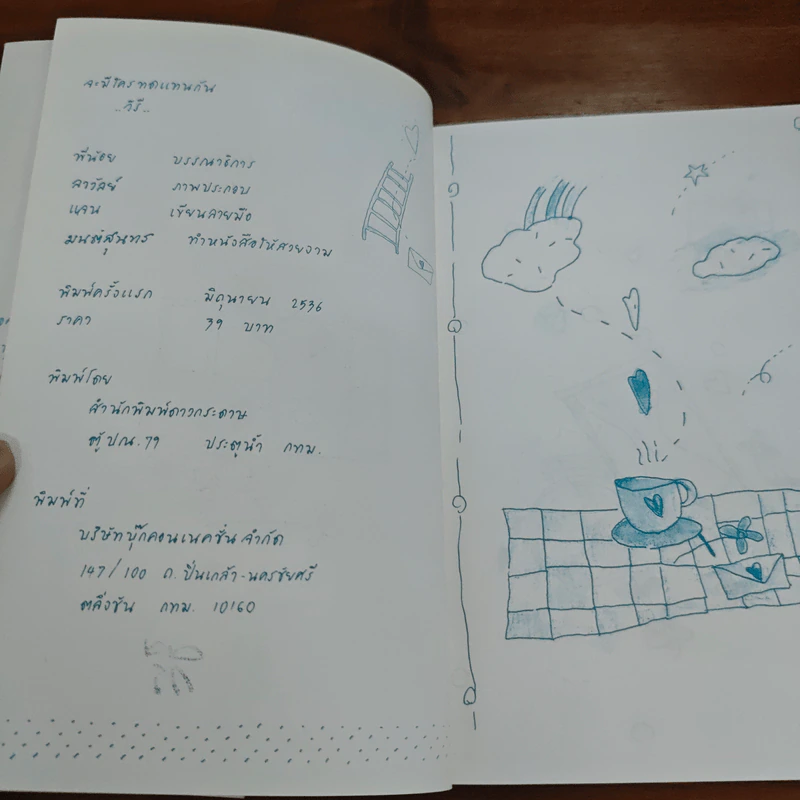 จะมีใครทดแทนกัน
..คีรี..
พี่น้อย บรรณาธิการ
ลาวัลย์ ภาพประกอบ
แลน เขียนลายมือ
มนต์สุนทร ทำหนังสือให้สวยงาม
พิมพ์ครั้งแรก มิถุนายน 2536
ราคา 39 บาท
พิมพ์โดย
สำนักพิมพ์ดาวกระดาษ
ตู้ ปณ. 79 ประตูน้ำ กทม.
พิมพ์ที่
บริษัทบุ๊คคอนเนคชั่น จำกัด
147/100 ถ. ปิ่นเกล้า-นครชัยศรี
ตลิ่งชัน กทม. 10160